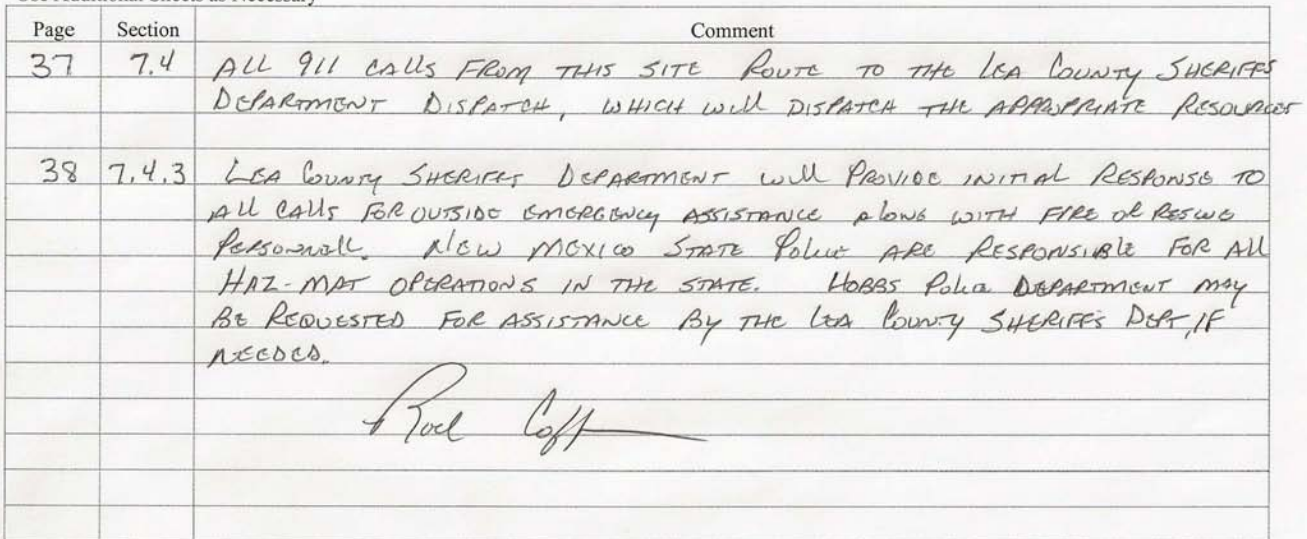 Page Section Comment
37 7.4 ALL 911 CALLS FROM THIS SITE ROUTE TO THE LEA COUNTY SHERIFFS
DEPARTMENT DISPATCH, WHICH WILL DISPATCH THE APPROPRIATE RESOURCES
38 7.4.3 LEA COUNTY SHERIFFS DEPARTMENT WILL PROVIDE INITIAL RESPONSE TO
ALL CALLS FOR OUTSIDE EMERGENCY ASSISTANCE ALONG WITH FIRE OR RESCUE
PERSONNELL. NEW MEXICO STATE POLICE ARE RESPONSIBLE FOR ALL
HAZ-MAT OPERATIONS IN THE STATE. HOBBS POLICE DEPARTMENT MAY
BE REQUESTED FOR ASSISTANCE BY THE LEA COUNTY SHERIFF'S DEPT, IF
NEEDED.